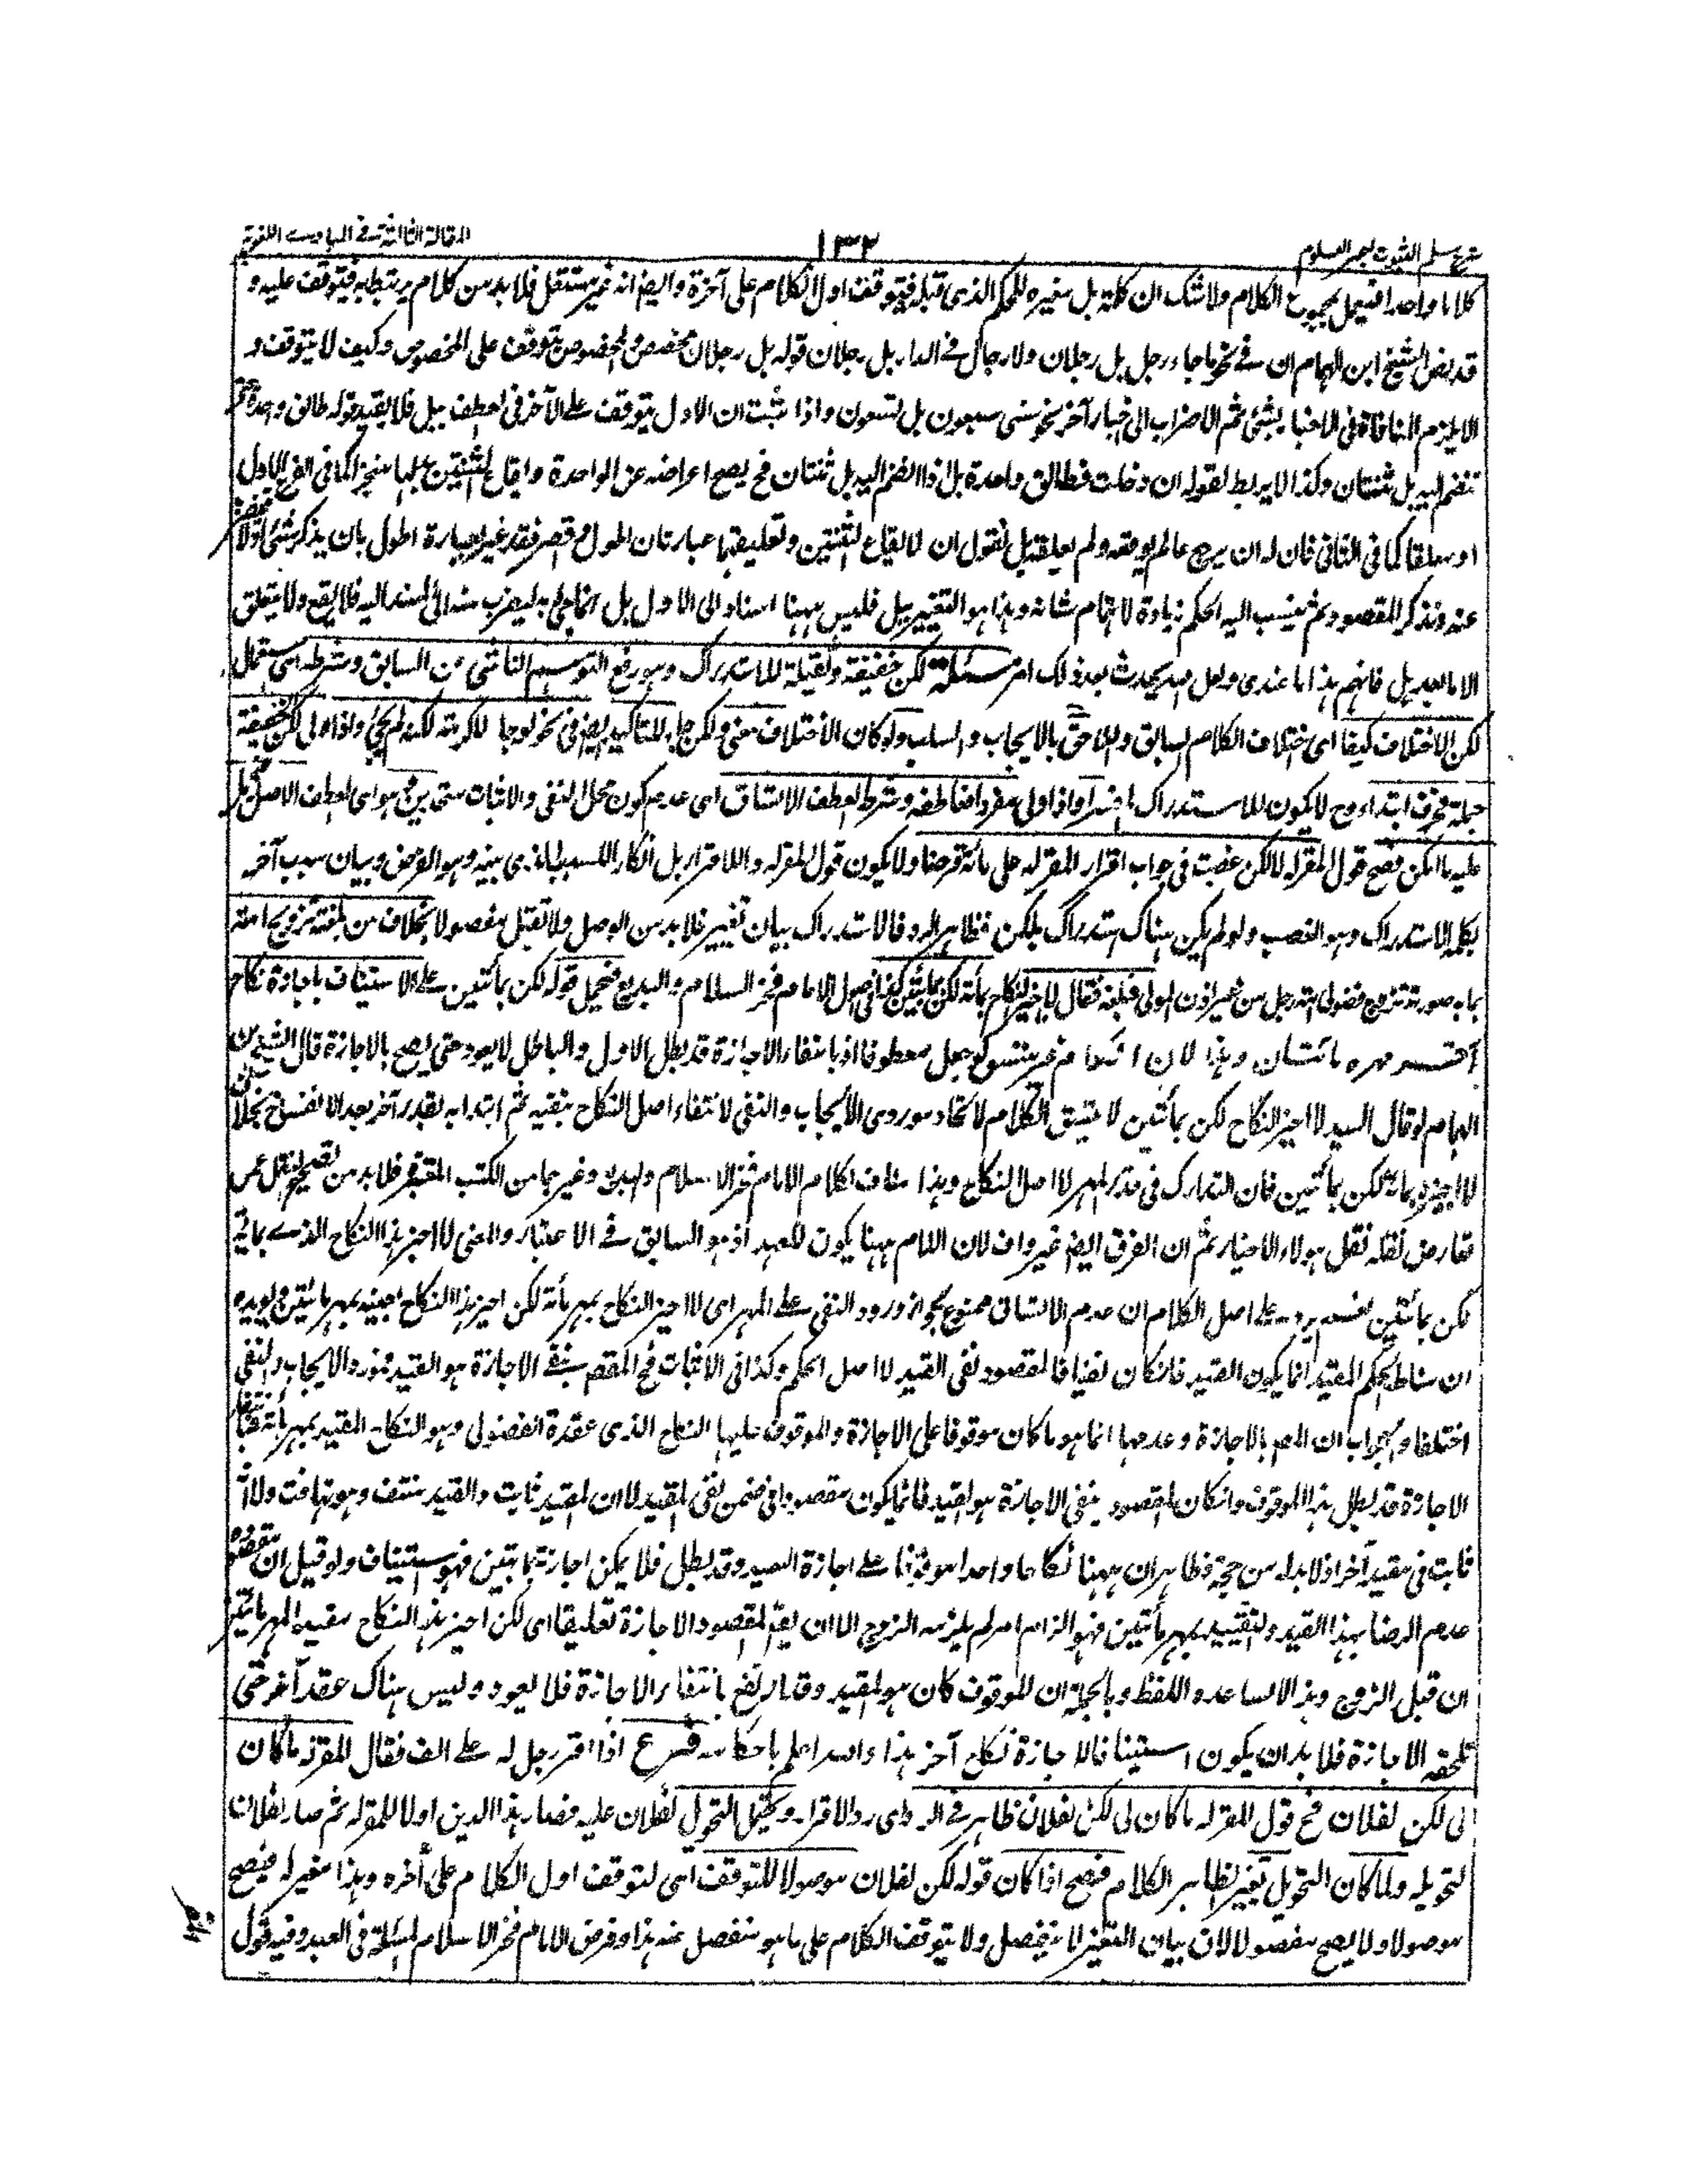 شرح مسلم الثبوت لبحر العلوم
١٣٢
المقالة الثالثة في المبادي اللغوية
كلاما واحدا فيعمل بمجموع الكلام ولا شك ان كلمة بل مغيرة للحكم الذى قبله فيتوقف اول الكلام على آخرة وايضا انه غير مستقل فلا بد من كلام يرتبط به فيتوقف عليه و
قد نص الشيخ ابن الهمام ان في نحو ما جاء رجل بل رجلان ولا رجال في الدار بل رجلان قوله بل رجلان مخصص والمخصوص يتوقف على المخصص وكيف لا يتوقف و
الا يلزم المنافاة فى الاخبار بشئ ثم الاضراب الى اخبار آخر نحو سنى سبعون بل تسعون واذا ثبت ان الاول يتوقف على الآخر فى العطف ببل فلا يفيد قوله طالق واحدة
تنضم اليه بل ثنتان وكذا لا يرتبط لقوله ان دخلت فطالق واحدة بل اذا انضم اليه بل ثنتان فح يصح اعراضه عن الواحدة وايقاع الثنتين بدلها منجزا كما فى الفرع الاول
او معلقا كما فى الثانى فان له ان يرجع عما لم يوقعه ولم يعلقه بل نقول ان لايقاع الثنتين وتعليقهما عبارتان اطول واقصر فقد غير العبارة اطول بان يذكر شئ اولا
عنه ويذكر المقصود ثم ينسب اليه الحكم زيادة لاهتمام شانه وهذا هو التغيير ببل فليس ههنا اسناد الى الاول بل انما جئ به ليضرب منه الى المسند اليه فلا يقع ولا يتعلق
الا ما بعد بل فافهم هذا ما عندى ولعل الله يحدث بعد ذلك امرا مسئلة لكن خفيفة وثقيلة للاستدراك وهو رفع التوهم الناشى عن السابق وشرطه اى استعمال
لكن الاختلاف كيفا اى اختلاف الكلام السابق واللاحق بالايجاب والسلب ولو كان الاختلاف معنى ولكن جاء للتاكيد ايضا فى نحو لو جاء لاكرمته لكنه لم يجئ واذا ولى لكن الخفيفة
جملة فحرف ابتداء وح لا يكون للاستدراك واذا ولى مفردا فعاطفة وشرط العطف الاتساق اى عدم كون محل النفى والاثبات متحدين وهو اى العطف الاصل فيحمل
عليه ما امكن فصح قول المقر له لا لكن غصبت فى جواب اقرار المقر له على مائة قرضا ولا يكون قول المقر له رد الاقرار بل انكار السبب الذى بينه وهو القرض وبيان سبب آخر
بكلمة الاستدراك وهو الغصب ولو لم يكن هناك استدراك بلكن فظاهره الرد فالاستدراك بيان تغيير فلا بد من الوصل ولا تقبل مفصولا بخلاف من بلغه تزويج امته
بمائة صورته تزوج فضولى امة رجل من غير اذن المولى فبلغه فقال لا اجيز النكاح بمائة لكن بمائتين كذا فى اصول الامام فخر الاسلام والبديع فحمل قوله لكن بمائتين على الاستيناف باجازة نكاح
آخر مهره مائتان وهذا لان الكلام غير متسق لو جعل معطوفا اذ بانتفاء الاجازة قد بطل الاول والباطل لا يعود حتى يصح بالاجازة قال الشيخ ابن
الهمام لو قال السيد لا اجيز النكاح لكن بمائتين لا يتسق الكلام لاتحاد موردى الايجاب والنفى لانتفاء اصل النكاح بنفيه ثم ابتداءه بقدر آخر بعد الانفساخ بخلاف
لا اجيزه بمائة لكن بمائتين فان التدارك فى قدر المهر لا اصل النكاح وهذا مناف لكلام الامام فخر الاسلام والبديع وغيرهما من الكتب المعتبرة فلا بد من تصحيح النقل عمن
تعارض نقله نقل هؤلاء الاخيار ثم ان الفرق ايضا غير واف لان اللام ههنا يكون للعهد اذ هو السابق فى الاعتبار والمعنى لا اجيز هذا النكاح الذى بمائة
لكن بمائتين نعم يرد على اصل الكلام ان عدم الاتساق ممنوع لجواز ورود النفى على المهر اى لا اجيز النكاح بمهر مائة لكن اجيز هذا النكاح بعينه بمهر مائتين ويؤيده
ان مناط الحكم المقيد انما يكون القيد فان كان نفيا فالمقصود نفى القيد لا اصل الحكم وكذا فى الاثبات فح المقصود بنفى الاجازة هو القيد فمورد الايجاب والنفى
اختلفا والجواب ان المراد بالاجازة وعدمها انما هو ما كان موقوفا على الاجازة والموقوف عليها النكاح الذى عقده الفضولى وهو النكاح المقيد بمهر مائة
الاجازة قد بطل هذا الموقوف وان كان المقصود بنفى الاجازة هو القيد فانما يكون مقصودا فى ضمن نفى المقيد لا ان المقيد ثابت والقيد منتف وهو تهافت ولا
ثابت فى مقيد آخر اذ لا بد له من حجة وظاهر ان ههنا نكاحا واحدا موقوفا على اجازة السيد وقد بطل فلا يمكن اجازته بمائتين فهو استيناف ولو قيل ان مقصوده
عدم الرضا بهذا القيد والتقييد بمهر مائتين فهو الزام امر لم يلزمه الزوج الا ان يعد المقصود الاجازة تعليقا اى لكن اجيز هذا النكاح مقيد المهر مائتين
ان قبل الزوج وهذا لا يساعده اللفظ وبالجملة ان الموقوف كان هو المقيد وقد ارتفع بانتفاء الاجازة فلا يعود وليس هناك عقد آخر حتى
تلحقه الاجازة فلا بد ان يكون استينافا لاجازة نكاح آخر هذا والله اعلم باحكامه فرع اذا اقر رجل له على الف فقال المقر له ما كان
لى لكن لفلان فح قول المقر له ما كان لى لكن لفلان ظاهر فى الرد اى رد الاقرار ويحتمل التحويل لفلان عليه فصار هذا الدين اولا للمقر له ثم صار لفلان
لتحويله ولما كان التحويل تغيير الظاهر الكلام فيصح اذا كان قوله لكن لفلان موصولا للتوقف اى لتوقف اول الكلام على آخره وهذا مغير له فيصح
موصولا ولا يصح مفصولا لان بيان التغيير لا ينفصل ولا يتوقف الكلام على ما هو منفصل عنه هذا وفرض الامام فخر الاسلام المسئلة فى العبد وفيه قول